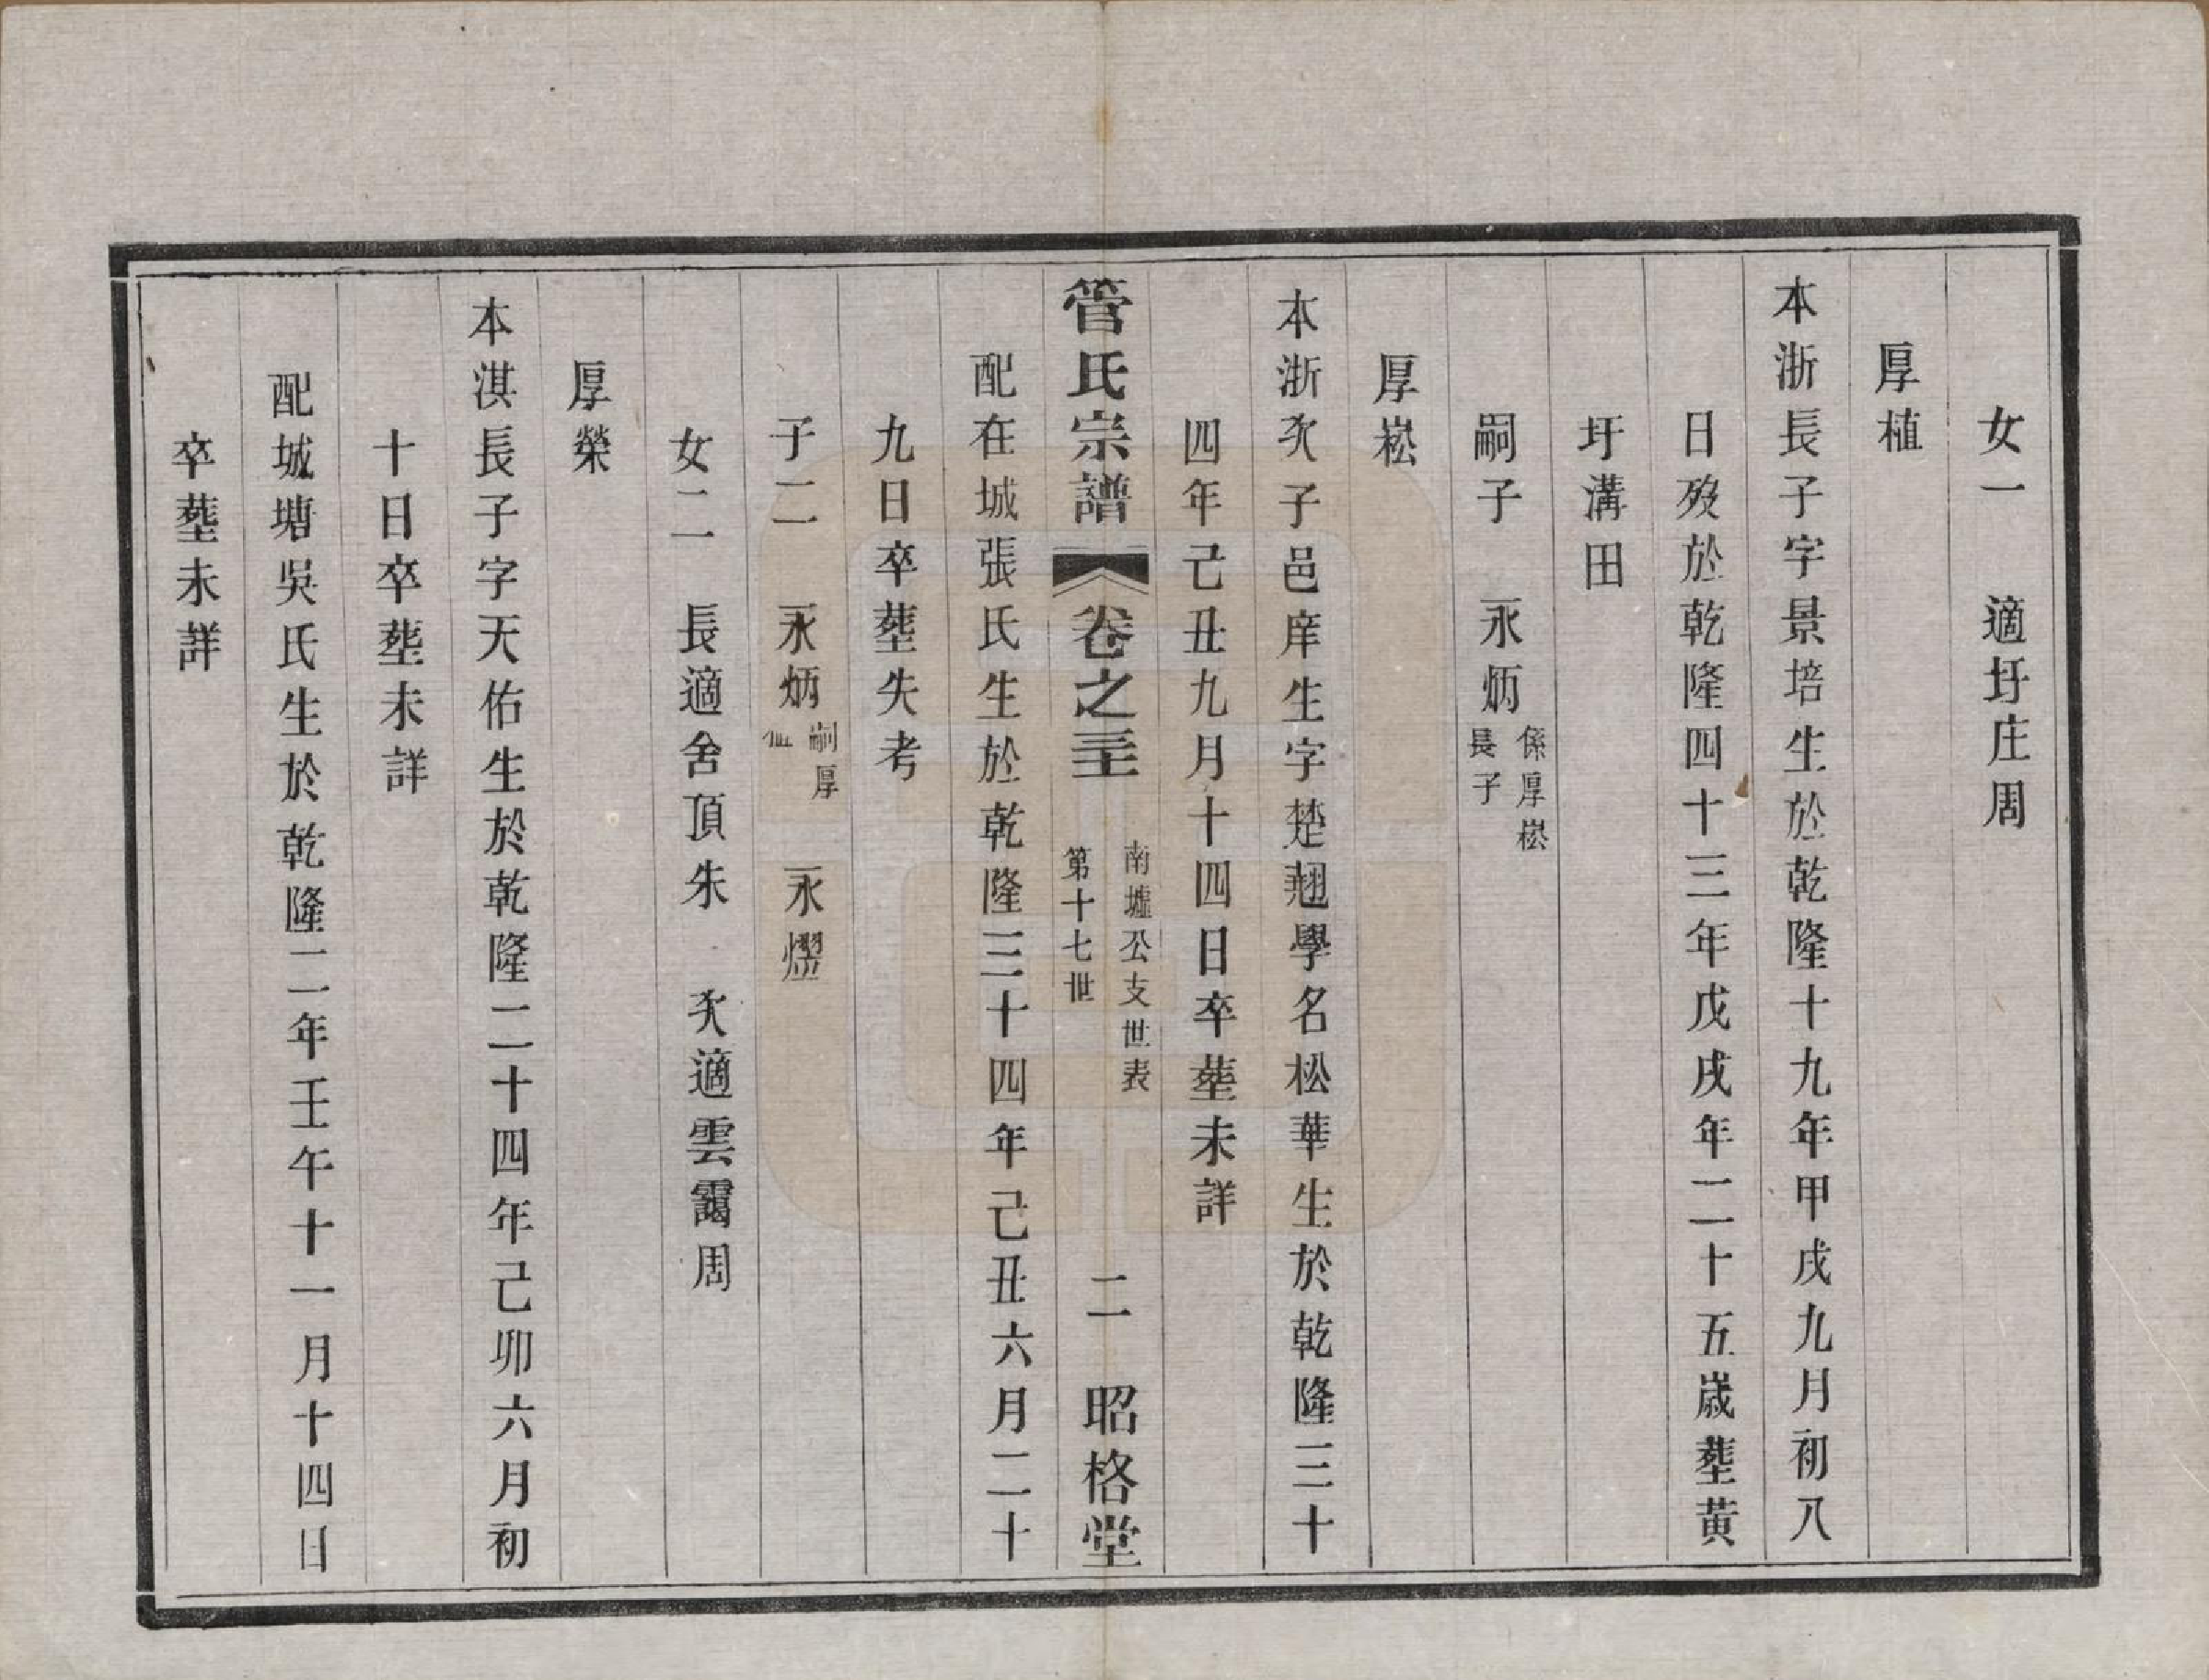 女一　適圩庄周
厚植
本浙長子字景培生於乾隆十九年甲戌九月初八
日歿於乾隆四十三年戊戌年二十五歲塟黃
圩溝田
嗣子　永炳係厚崧長子
厚崧
本浙次子邑庠生字楚翹學名松華生於乾隆三十
四年己丑九月十四日卒塟未詳
管氏宗譜　卷之三　南墟公支世表　第十七世　二　昭格堂
配在城張氏生於乾隆三十四年己丑六月二十
九日卒塟失考
子二　永炳嗣厚　永熠
女二　長適舍頂朱　次適雲靄周
厚榮
本淇長子字天佑生於乾隆二十四年己卯六月初
十日卒塟未詳
配城塘吳氏生於乾隆二年壬午十一月十四日
卒塟未詳